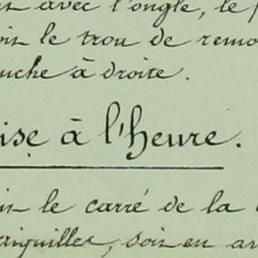 avec l'ongle, le
le trou de remo
uche à droite.
ise à l'heure.
le carré de la
aiguilles, soit en ar